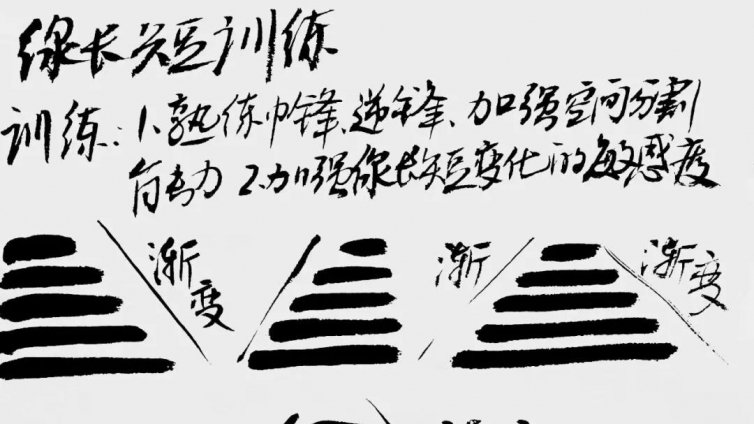 线长短训练
训练:1.熟练中锋、逆锋、加强空间分割
能力 2.加强线长短变化的敏感度
渐变 渐 渐变